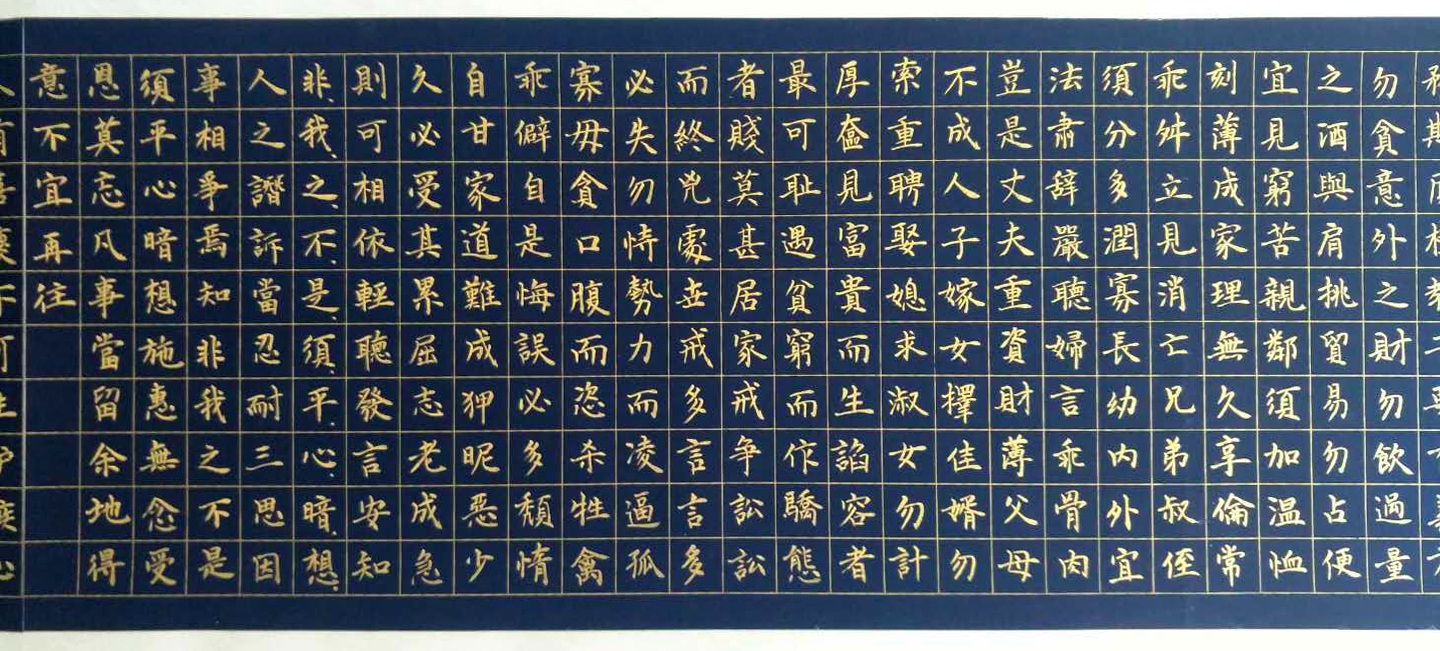 勿貪意外之財勿飲過量
之酒與肩挑貿易勿占便
宜見窮苦親鄰須加温恤
刻薄成家理無久享倫常
乖舛立見消亡兄弟叔侄
須分多潤寡長幼内外宜
法肅辞嚴聽婦言乖骨肉
豈是丈夫重資財薄父母
不成人子嫁女擇佳婿勿
索重聘娶媳求淑女勿計
厚奩見富貴而生諂容者
最可耻遇貧窮而作驕態
者賤莫甚居家戒争訟訟
而終兇處世戒多言言多
必失勿恃勢力而凌逼孤
寡毋貪口腹而恣杀牲禽
乖僻自是悔誤必多頹惰
自甘家道難成狎昵恶少
久必受其累屈志老成急
則可相依輕聽發言安知
非我之不是須平心暗想
人之譖訴當忍耐三思因
事相爭焉知非我之不是
須平心暗想施惠無念受
恩莫忘凡事當留余地得
意不宜再往